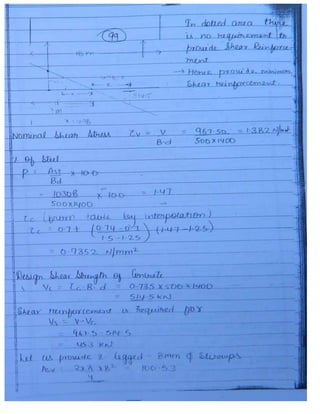 99
In doted area there
is no requirement to
provide Shear Reinforce-
ment
→ Hence provide minimum
Shear reinforcement.
Nominal Shear Stress τv = V/B·d = 967.50/500×1400 = 1.382 N/mm²
% Of Steel
P = Ast/Bd × 100
= 10308/500×1400 × 100 = 1.47
τc (from table by interpolation)
τc = 0.7 + (0.74-0.7/1.5-1.25) (1.47-1.25)
= 0.7352 N/mm²
Design Shear Strength of Concrete
Vc = τc B d = 0.735 × 500 × 1400
= 514.5 kN
Shear reinforcement is Required for
Vs = V-Vc
= 967.5 - 514.5
= 453 kN
Let us provide 2 legged - 8mm φ Stirrups
Asv = 2×π×8²/4 = 100.53